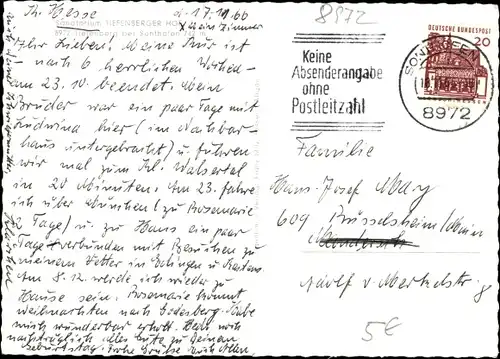 Th. Hesse
z. 17.10.66
Sanatorium TIEFENBERGER HOF
8972 Tiefenberg bei Sonthofen
Ihr Lieben! Meine Kur ist
nach 6 herrlichen Wochen
am 23.10 beendet. Mein
Bruder war ein paar Tage mit
Ludwina hier (im Nachbar-
haus untergebracht) u. fuhren
wir mal zum Kl. Walsertal
in 20 Minuten. Am 23. fahre
ich über München (zu Rosemarie
2 Tage) u. zu Hause ein paar
Tage verbunden mit Besuchen zu
meinem Vetter in
Am 8.12 werde ich wieder zu
Hause sein. Rosemarie kommt
Weihnachten nach Godesberg. Habe
mich wunderbar erholt. Dem
nachträglich alles Gute zu Deinem
Geburtstag. Frohe Grüße Euch Allen
8972
Keine
Absenderangabe
ohne
Postleitzahl
SONTHOFEN
8972
DEUTSCHE BUNDESPOST
20
Familie
Hans-Josef May
609 Rüsselsheim/Main
Adolf v.
5€